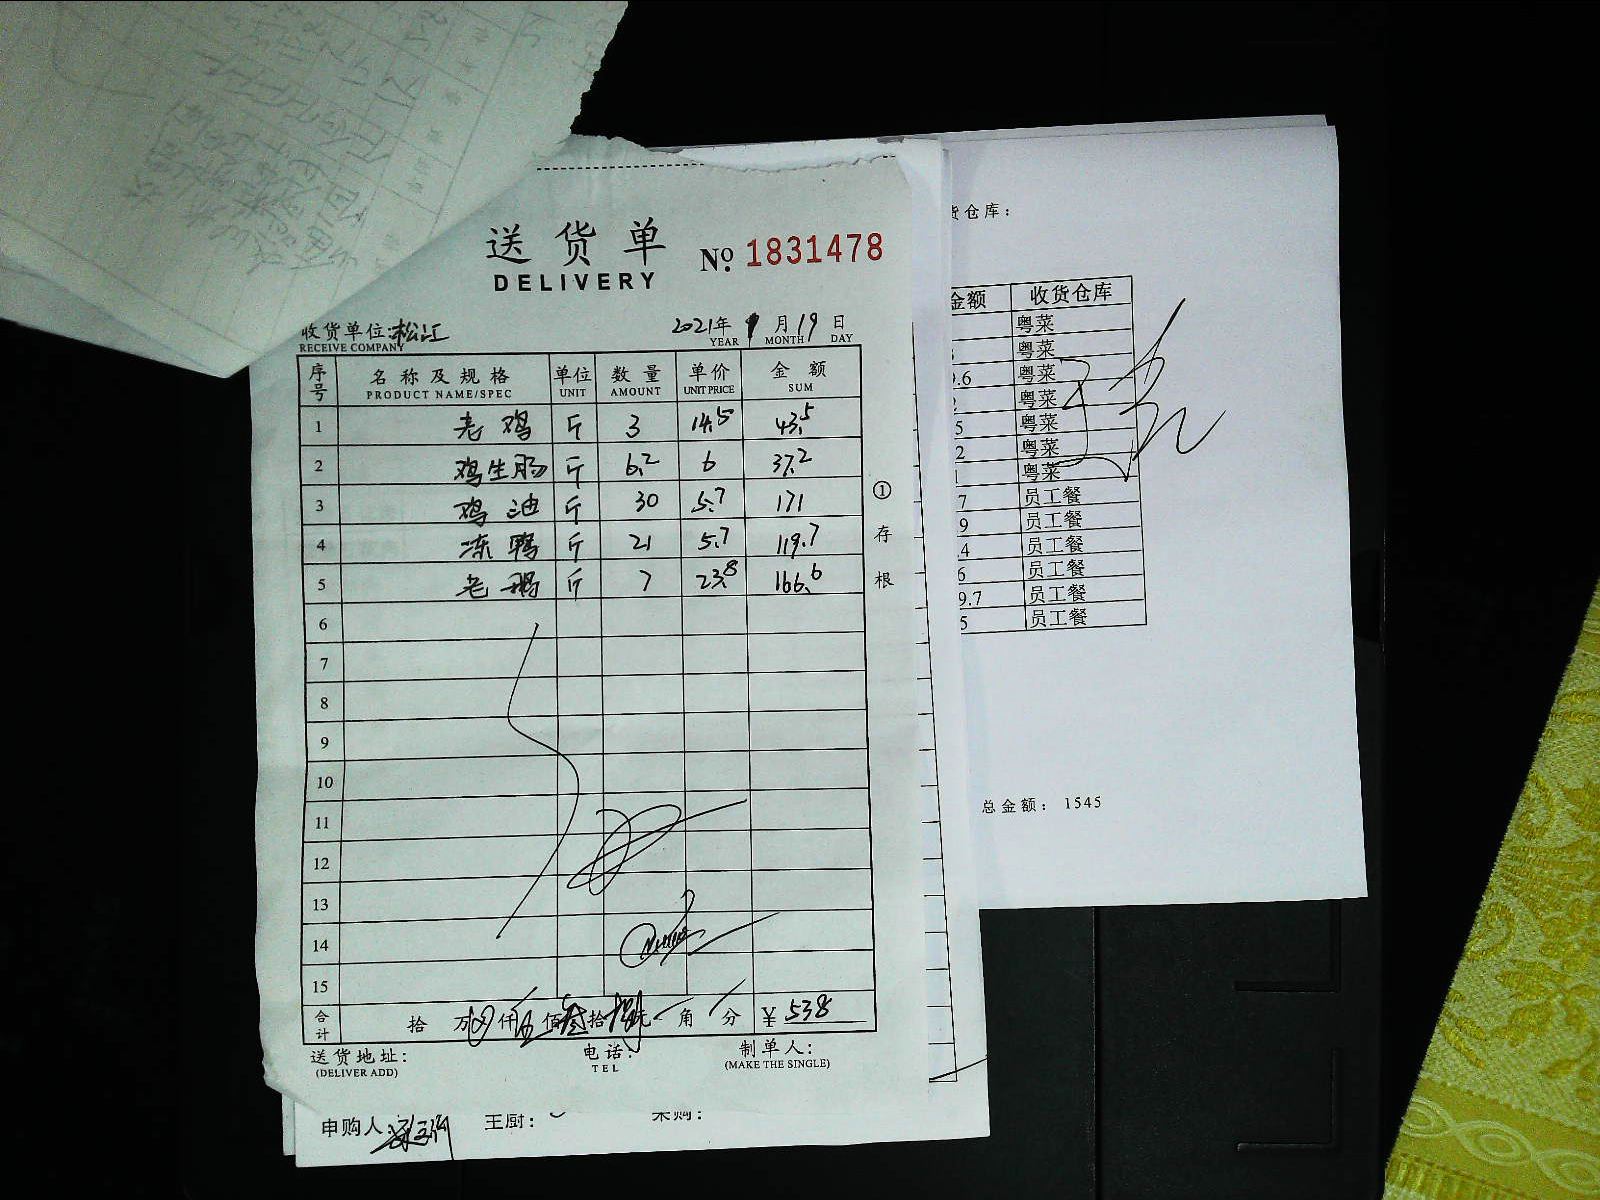 送货单
DELIVERY
№ 1831478
收货单位:松江
RECEIVE COMPANY
2021年 9月19日
YEAR MONTH DAY
序号 名称及规格 单位 数量 单价 金额
PRODUCT NAME/SPEC UNIT AMOUNT UNIT PRICE SUM
1 老鸡 斤 3 14.5 43.5
2 鸡生肠 斤 6.2 6 37.2
3 鸡油 斤 30 5.7 171
4 冻鸭 斤 21 5.7 119.7
5 老鹅 斤 7 23.8 166.6
6
7
8
9
10
11
12
13
14
15
合计 拾 万 仟伍佰叁拾捌元 角 分 ¥538
①存根
送货地址: 电话: 制单人:
(DELIVER ADD) TEL (MAKE THE SINGLE)
申购人: 王厨: 采购:
货仓库:
金额 收货仓库
粤菜
粤菜
9.6 粤菜
2 粤菜
5 粤菜
2 粤菜
粤菜
7 员工餐
9 员工餐
.4 员工餐
6 员工餐
9.7 员工餐
5 员工餐
总金额: 1545